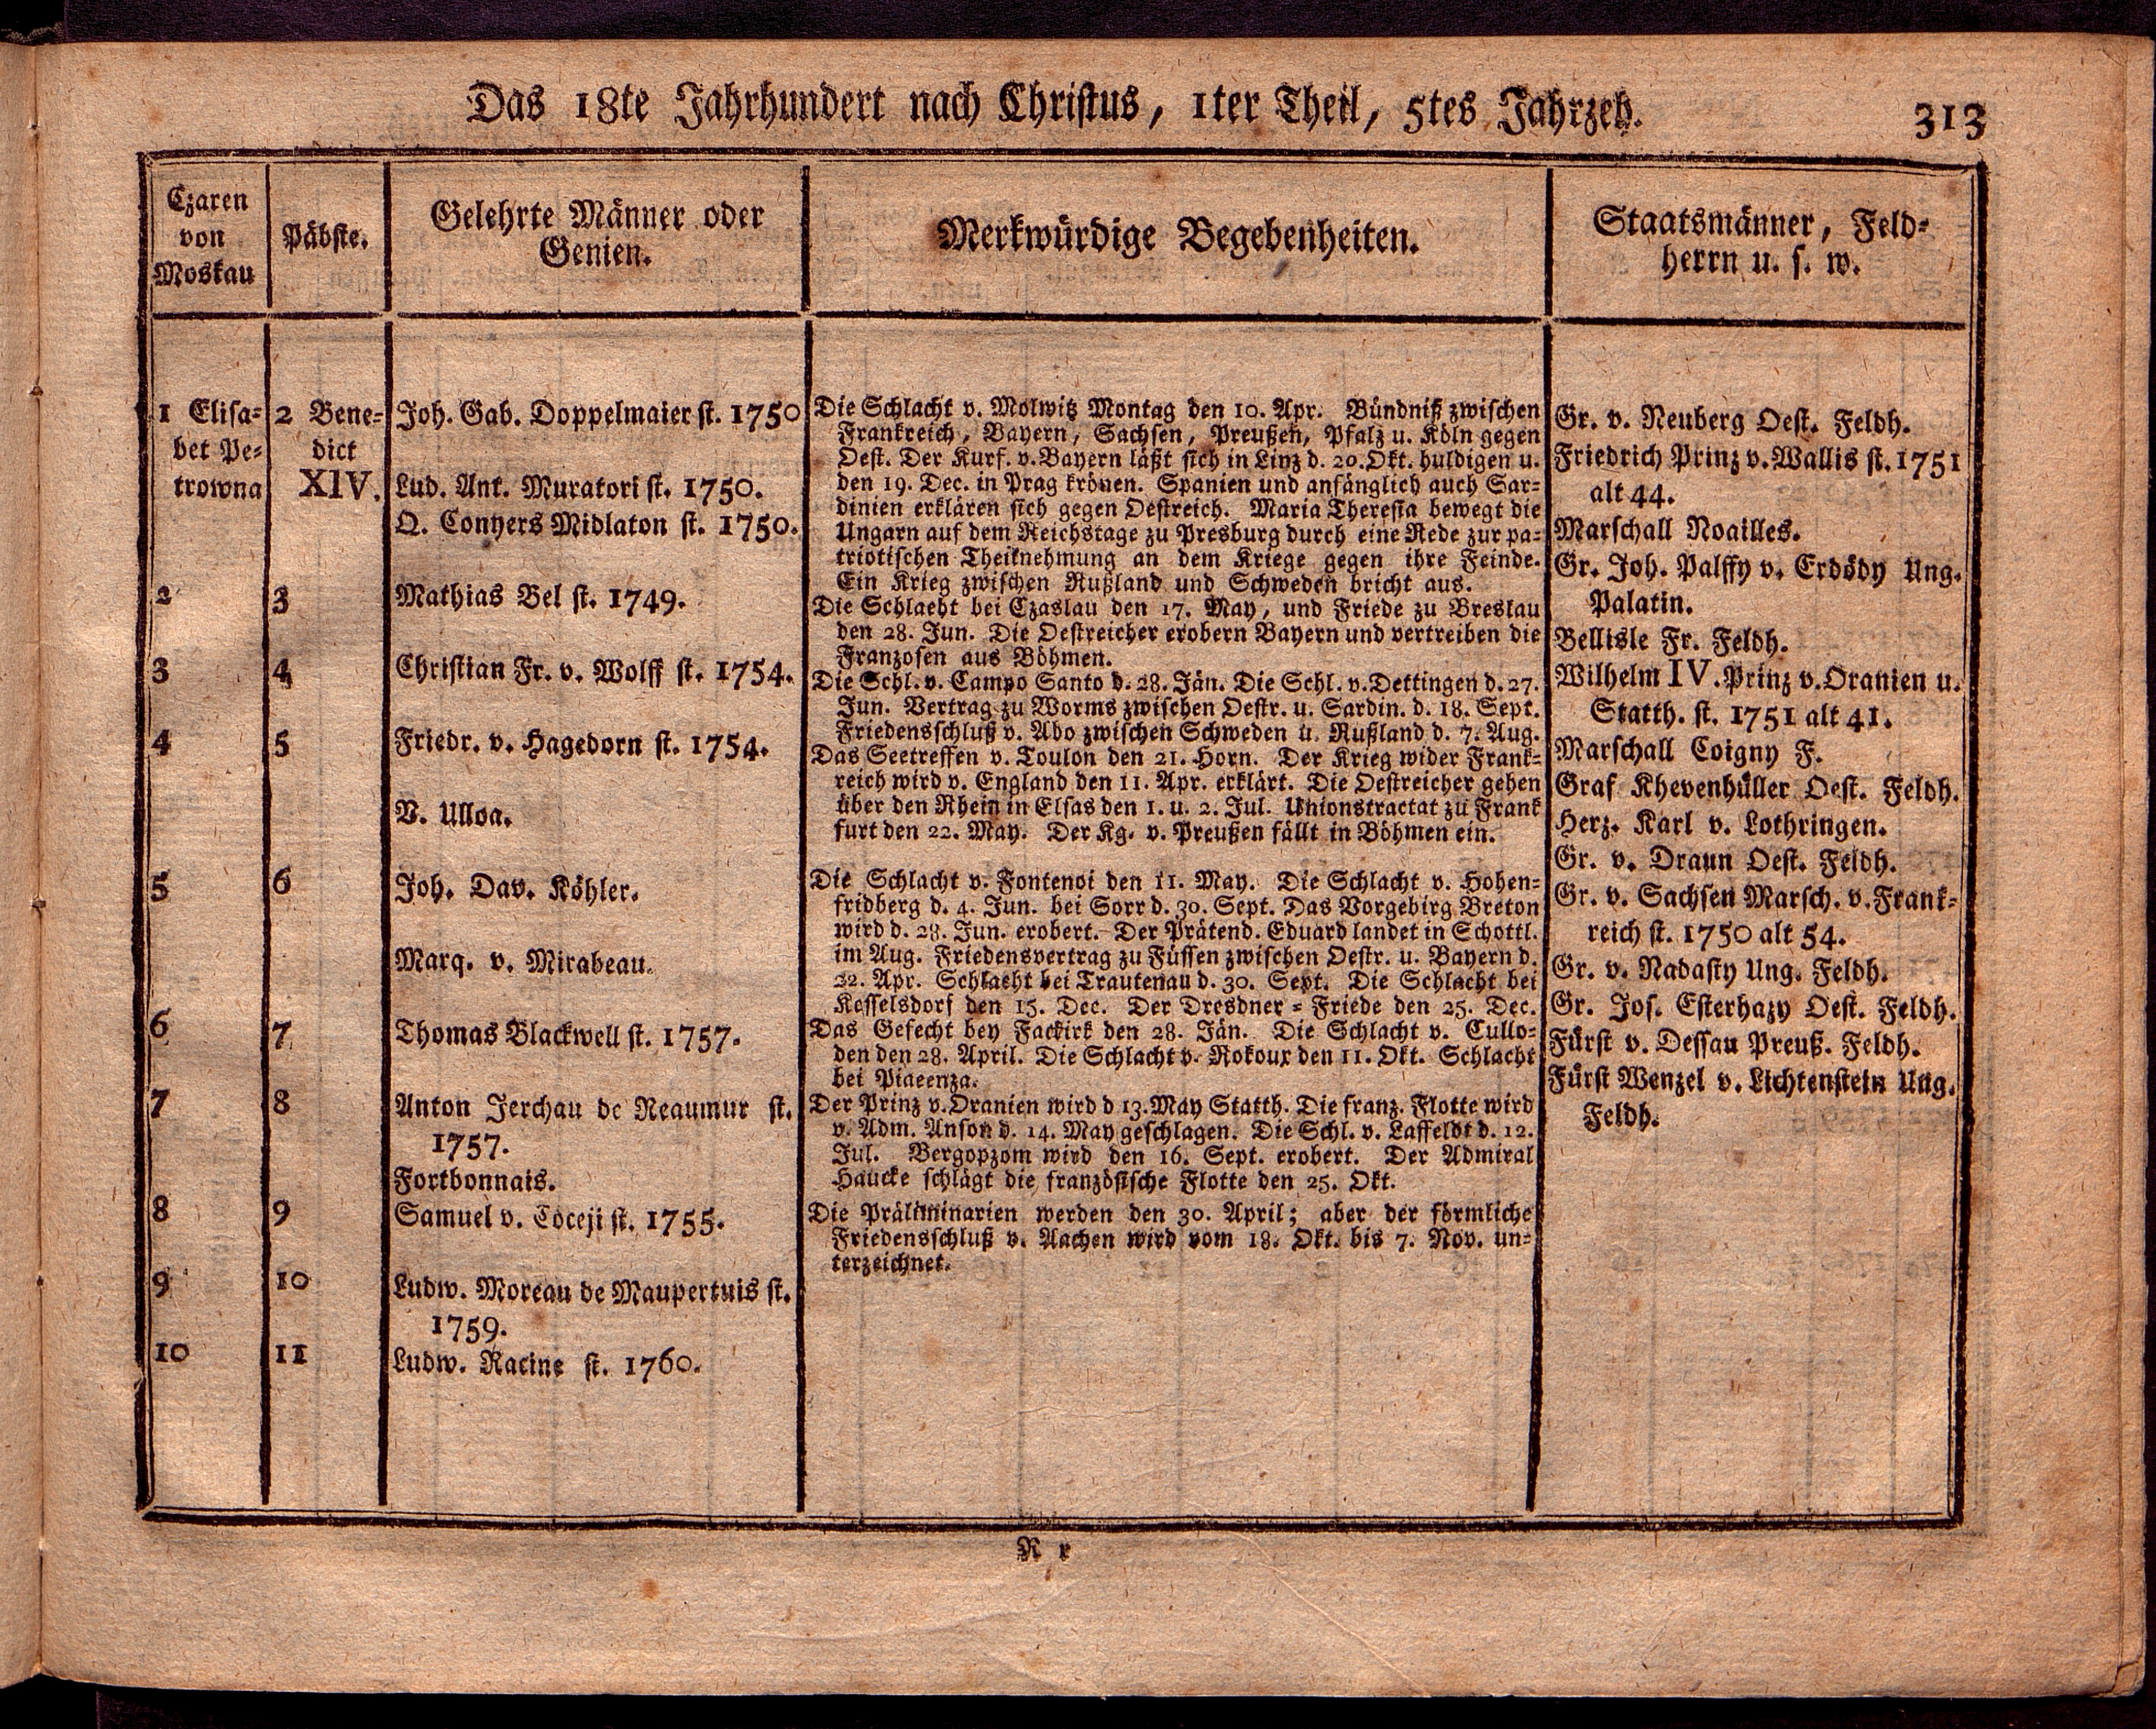 Das 18te Jahrhundert nach Christus, 1ter Theil, 5tes Jahrzeh.
313
Czaren
von
Moskau
Päbste.
Gelehrte Männer oder
Genien.
Merkwürdige Begebenheiten.
Staatsmänner, Feld-
herrn u. s. w.
1 Elisa-
bet Pe-
trowna
2
3
4
5
6
7
8
9
10
2 Bene-
dict
XIV.
3
4
5
6
7
8
9
10
11
Joh. Gab. Doppelmaier st. 1750
Lud. Ant. Muratori st. 1750.
Q. Conyers Midlaton st. 1750.
Mathias Bel st. 1749.
Christian Fr. v. Wolff st. 1754.
Friedr. v. Hagedorn st. 1754.
V. Ulloa.
Joh. Dav. Köhler.
Marq. v. Mirabeau.
Thomas Blackwell st. 1757.
Anton Jerchau de Reaumur st.
1757.
Fortbonnais.
Samuel v. Coceji st. 1755.
Ludw. Moreau de Maupertuis st.
1759.
Ludw. Racine st. 1760.
Die Schlacht v. Molwitz Montag den 10. Apr. Bündniß zwischen
Frankreich, Bayern, Sachsen, Preußen, Pfalz u. Köln gegen
Oest. Der Kurf. v. Bayern läßt sich in Linz d. 20. Okt. huldigen u.
den 19. Dec. in Prag krönen. Spanien und anfänglich auch Sar-
dinien erklären sich gegen Oestreich. Maria Theresia bewegt die
Ungarn auf dem Reichstage zu Presburg durch eine Rede zur pa-
triotischen Theilnehmung an dem Kriege gegen ihre Feinde.
Ein Krieg zwischen Rußland und Schweden bricht aus.
Die Schlacht bei Czaslau den 17. May, und Friede zu Breslau
den 28. Jun. Die Oestreicher erobern Bayern und vertreiben die
Franzosen aus Böhmen.
Die Schl. v. Campo Santo d. 28. Jän. Die Schl. v. Dettingen d. 27.
Jun. Vertrag zu Worms zwischen Oestr. u. Sardin. d. 18. Sept.
Friedensschluß v. Abo zwischen Schweden u. Rußland d. 7. Aug.
Das Seetreffen v. Toulon den 21. Horn. Der Krieg wider Frank-
reich wird v. England den 11. Apr. erklärt. Die Oestreicher gehen
über den Rhein in Elsas den 1. u. 2. Jul. Unionstractat zu Frank
furt den 22. May. Der Kg. v. Preußen fällt in Böhmen ein.
Die Schlacht v. Fontenoi den 11. May. Die Schlacht v. Hohen-
fridberg d. 4. Jun. bei Sorr d. 30. Sept. Das Vorgebirg Breton
wird d. 28. Jun. erobert. Der Prätend. Eduard landet in Schottl.
im Aug. Friedensvertrag zu Füssen zwischen Oestr. u. Bayern d.
22. Apr. Schlacht bei Trautenau d. 30. Sept. Die Schlacht bei
Kesselsdorf den 15. Dec. Der Dresdner-Friede den 25. Dec.
Das Gefecht bey Fackirk den 28. Jän. Die Schlacht v. Cullo-
den den 28. April. Die Schlacht v. Rokoux den 11. Okt. Schlacht
bei Piacenza.
Der Prinz v. Oranien wird d 13. May Statth. Die franz. Flotte wird
v. Adm. Anson d. 14. May geschlagen. Die Schl. v. Laffeldt d. 12.
Jul. Bergopzom wird den 16. Sept. erobert. Der Admiral
Haucke schlägt die französische Flotte den 25. Okt.
Die Präliminarien werden den 30. April; aber der förmliche
Friedensschluß v. Aachen wird vom 18. Okt. bis 7. Nov. un-
terzeichnet.
Gr. v. Neuberg Oest. Feldh.
Friedrich Prinz v. Wallis st. 1751
alt 44.
Marschall Noailles.
Gr. Joh. Palffy v. Erdödy Ung.
Palatin.
Bellisle Fr. Feldh.
Wilhelm IV. Prinz v. Oranien u.
Statth. st. 1751 alt 41.
Marschall Coigny F.
Graf Khevenhüller Oest. Feldh.
Herz. Karl v. Lothringen.
Gr. v. Draun Oest. Feldh.
Gr. v. Sachsen Marsch. v. Frank-
reich st. 1750 alt 54.
Gr. v. Nadasty Ung. Feldh.
Gr. Jos. Esterhazy Oest. Feldh.
Fürst v. Dessau Preuß. Feldh.
Fürst Wenzel v. Lichtenstein Ung.
Feldh.
R r